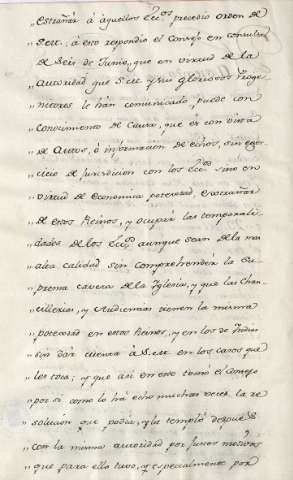 "estrañar á aquellos Ecc.os precedio orden de
"S.M.; á esto respondio el Consejo en consulta
"de seis de Junio, que en virtud de la
"autoridad que S.M. y sus gloriosos Proge
"nitores le han comunicado, puede con
"conocimiento de Causa, que es con vista
"de Autos, ó informacion de echos, sin eger
"cicio de jurisdicion con los Ecc.os sino en
"virtud de economica potestad, extrañar
"de estos Reinos, y ocupar las temporali
"dades de los Ecc.os aunque sean de la mas
"alta calidad sin comprehender la Su
"prema cavera de la Iglesia, y que las Chan
"cillerias, y Audiencias tienen la misma
"potestad en estos Reinos, y en los de Indias
"sin dar cuenta á S.M. en los casos que
"les toca; y que asi en esto tomó el Consejo
"por si como lo há echo muchas veces la re
"solucion que podia, y la templó despues
"con la misma autoridad por justos motivos
"que para ello tuvo, y especialmente por